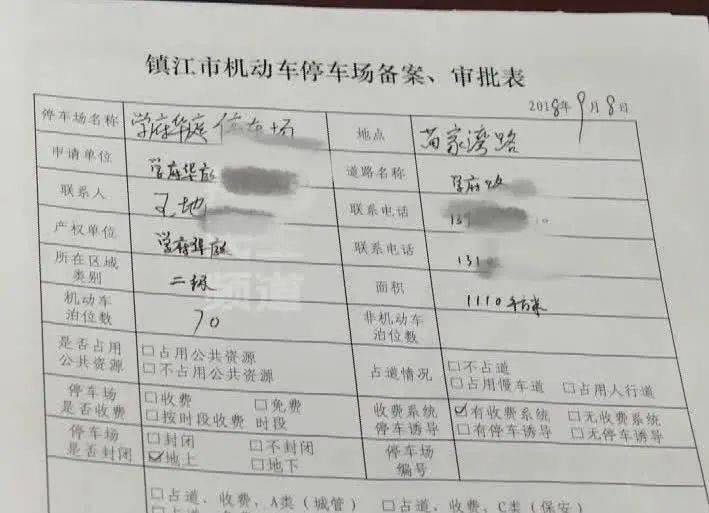 镇江市机动车停车场备案、审批表
2018年9月8日
停车场名称 学府华庭停车场 地点 苗家湾路
申请单位 学府华庭 道路名称 学府路
联系人 联系电话 139
产权单位 学府华庭 联系电话 1310
所在区域类别 二级 面积 1110平方米
机动车泊位数 70 非机动车泊位数
是否占用公共资源 □占用公共资源 □不占用公共资源 占道情况 □不占道 □占用慢车道 □占用人行道
停车场是否收费 □收费 □免费 □按时段收费 时段 收费系统停车诱导 ☑有收费系统 □无收费系统 □有停车诱导 □无停车诱导
停车场是否封闭 □封闭 □不封闭 ☑地上 □地下 停车场编号
□占道、收费，A类（城管） □占道、收费，C类（保安）
频道